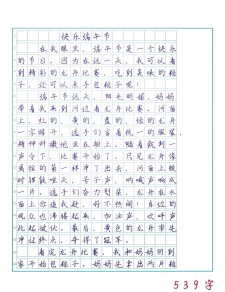 快乐端午节
在我眼里，端午节是一个快乐
的节日。因为在这一天，我可以看
到精彩的龙舟比赛，吃到美味的粽
子，还可以亲手包粽子呢！
端午节这天，阳光明媚，妈妈
带着我来到河边看龙舟比赛。河面
上，红的、黄的、绿的、蓝的龙舟
一字排开，选手们穿着统一的服装，
精神抖擞地坐在上面。随着
声令下，比赛开始了。只见龙舟像
离弦的箭一样冲了出去，河面上顿
时锣鼓喧天，呐喊声、欢呼声响成
一片。选手们奋力划桨，龙舟在水
面上你追我赶，好不热闹！岸边的
观众也沸腾起来，加油声、欢呼声
此起彼伏。最后，黄色的龙舟率先
冲过终点，夺得了冠军。
看完龙舟比赛，我和妈妈回到
家开始包粽子。妈妈先拿出两片粽
539字